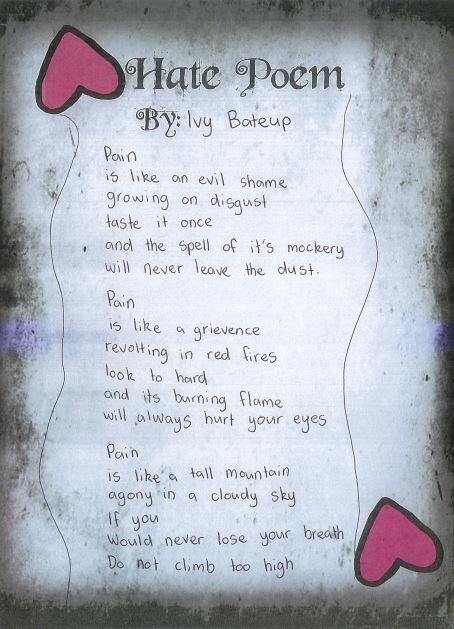 Hate Poem
By: Ivy Bateup
Pain
is like an evil shame
growing on disgust
taste it once
and the spell of it's mockery
will never leave the dust.
Pain
is like a grievence
revolting in red fires
look to hard
and its burning flame
will always hurt your eyes
Pain
is like a tall mountain
agony in a cloudy sky
If you
Would never lose your breath
Do not climb too high